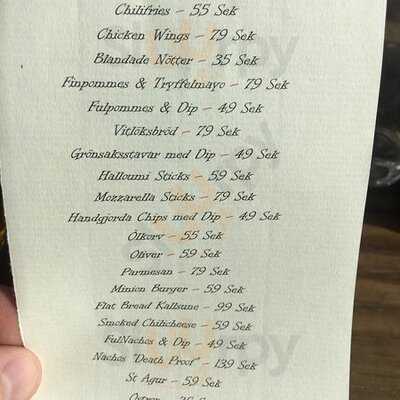 Chilifries – 55 Sek
Chicken Wings – 79 Sek
Blandade Nötter – 35 Sek
Finpommes & Tryffelmayo – 79 Sek
Fulpommes & Dip – 49 Sek
Vitlöksbröd – 79 Sek
Grönsaksstavar med Dip – 49 Sek
Halloumi Sticks – 59 Sek
Mozzarella Sticks – 79 Sek
Handgjorda Chips med Dip – 49 Sek
Ölkorv – 55 Sek
Oliver – 59 Sek
Parmesan – 79 Sek
Minion Burger – 59 Sek
Flat Bread Kallsune – 99 Sek
Smoked Chilicheese – 59 Sek
FulNachos & Dip – 49 Sek
Nachos "Death Proof" – 139 Sek
St Agur – 59 Sek